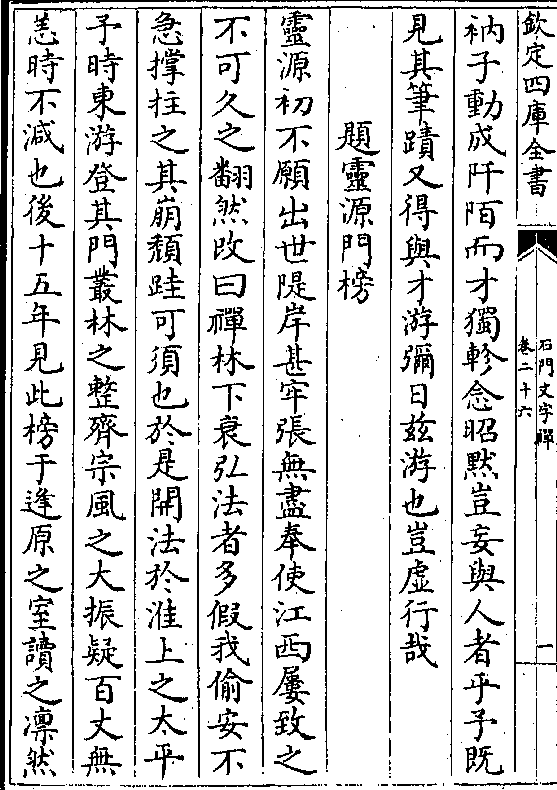 欽定四庫全書
石門文字禪
卷二十六
一
衲子動成阡陌而才獨軫念昭黙豈妄與人者乎予既
見其筆蹟又得與才游彌日兹游也豈虚行哉
題靈源門榜
靈源初不願出世隄岸甚牢張無盡奉使江西屢致之
不可久之翻然改曰禪林下衰弘法者多假我偷安不
急撐拄之其崩頽跬可須也於是開法於淮上之太平
予時東游登其門叢林之整齊宗風之大振疑百丈無
恙時不減也後十五年見此榜于逢原之室讀之凛然